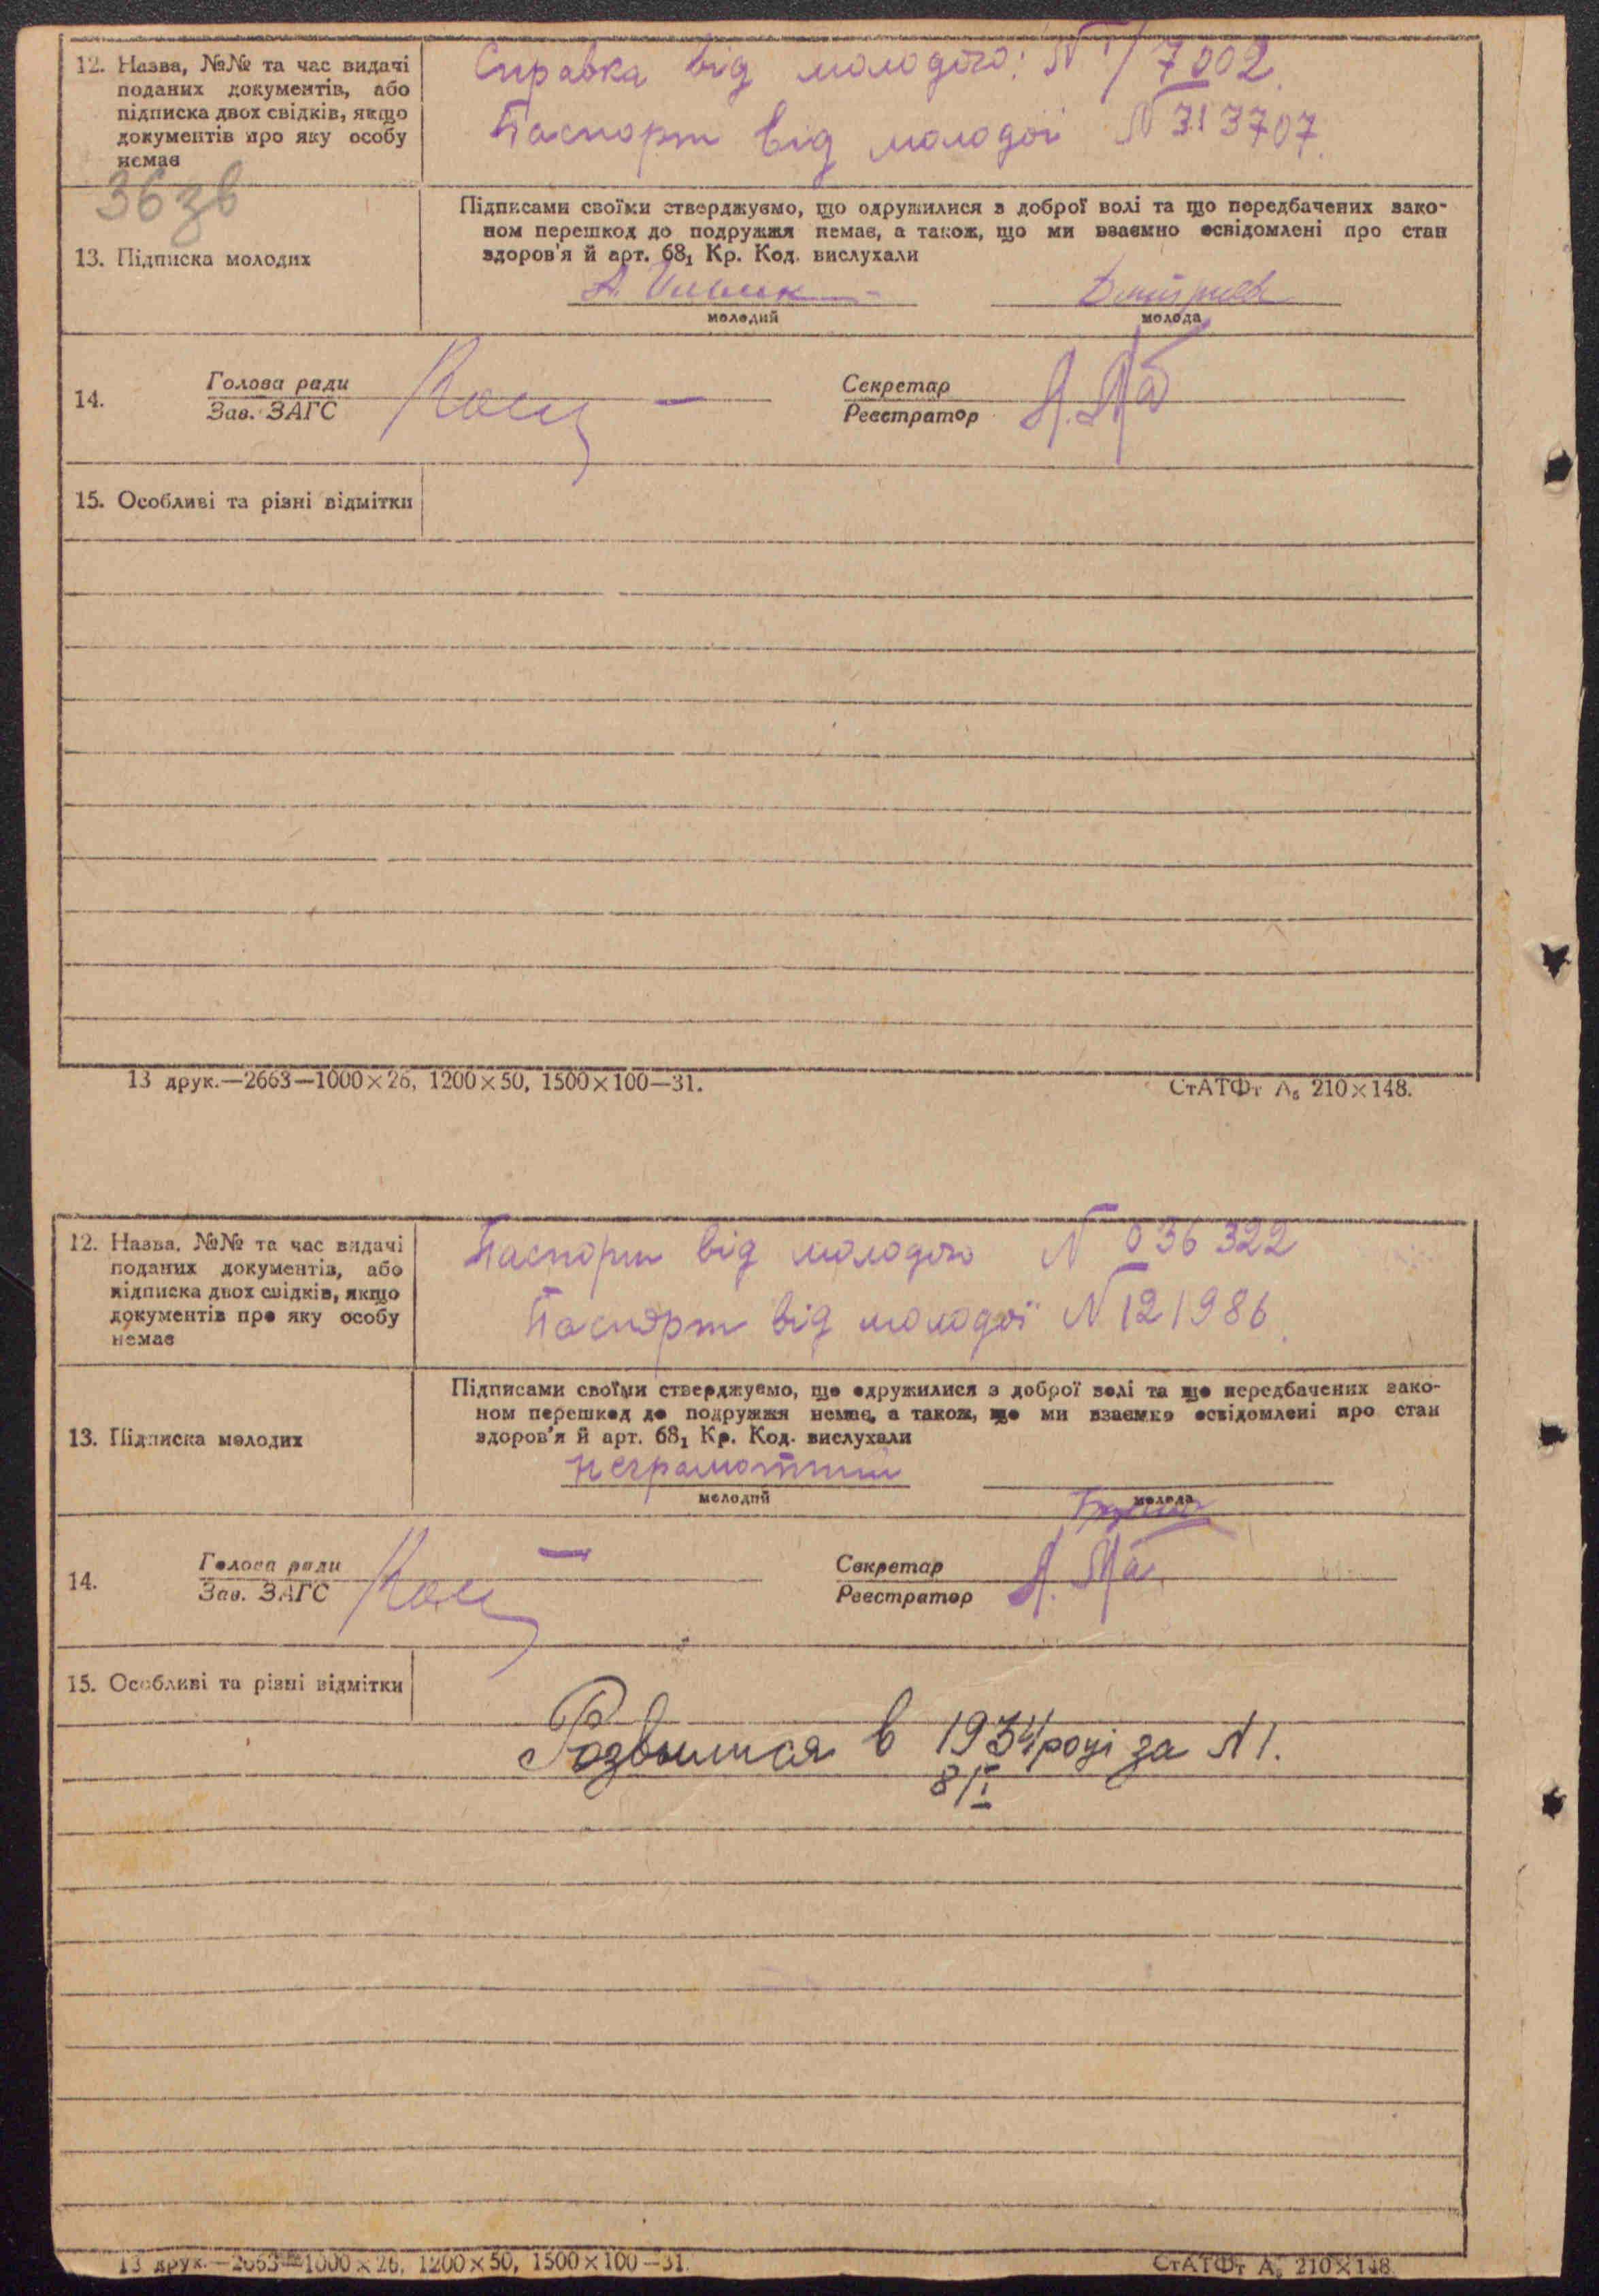 12. Назва, №№ та час видачі
поданих документів, або
підписка двох свідків, якщо
документів про яку особу
немає
Справка від молодого: N 1/7002.
Паспорт від молодої N 313707.
36 зв
13. Підписка молодих
Підписами своїми стверджуємо, що одружилися з доброї волі та що передбачених зако-
ном перешкод до подружжя немає, а також, що ми взаємно освідомлені про стан
здоров'я й арт. 68₁ Кр. Код. вислухали
молодий
молода
14.
Голова ради
Зав. ЗАГС
Секретар
Реєстратор
15. Особливі та різні відмітки
13 друк.—2663—1000×26, 1200×50, 1500×100—31.
СтАТФт А₅ 210×148.
12. Назва, №№ та час видачі
поданих документів, або
підписка двох свідків, якщо
документів про яку особу
немає
Паспорт від молодого N 036322
Паспорт від молодої N 121986.
13. Підписка молодих
Підписами своїми стверджуємо, що одружилися з доброї волі та що передбачених зако-
ном перешкод до подружжя немає, а також, що ми взаємно освідомлені про стан
здоров'я й арт. 68₁ Кр. Код. вислухали
неграмотний
молодий
молода
14.
Голова ради
Зав. ЗАГС
Секретар
Реєстратор
15. Особливі та різні відмітки
в 1934 році за N 1.
8/I
13 друк.—2663—1000×26, 1200×50, 1500×100—31.
СтАТФт А₅ 210×148.